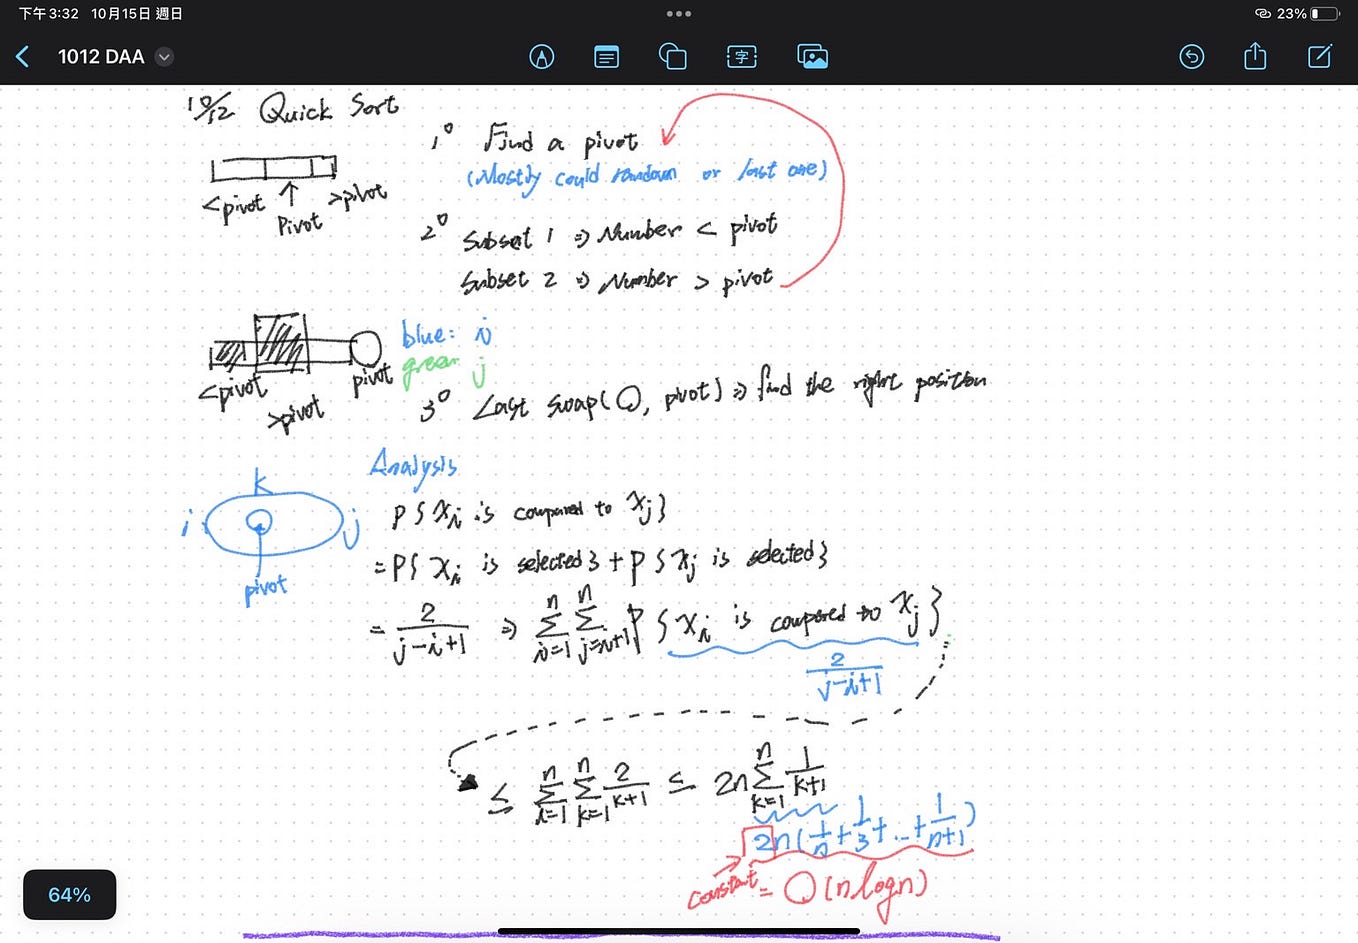 下午3:32 10月15日 週日
23%
1012 DAA
10/12 Quick Sort
1° Find a pivot
(Mostly could random or last one)
<pivot Pivot >pivot
2° Subset 1 => Number < pivot
Subset 2 => Number > pivot
blue: i
green: j
<pivot >pivot pivot
3° Last swap(O, pivot) => find the right position
Analysis
k
i j
pivot
P{Xi is compared to Xj}
= P{Xi is selected} + P{Xj is selected}
= 2/(j-i+1) => Σ_{i=1}^{n} Σ_{j=i+1}^{n} P{Xi is compared to Xj}
2/(j-i+1)
≤ Σ_{i=1}^{n} Σ_{k=1}^{n} 2/(k+1) ≤ 2n Σ_{k=1}^{n} 1/(k+1)
2n(1/2+1/3+...+1/(n+1))
constant = O(n logn)
64%